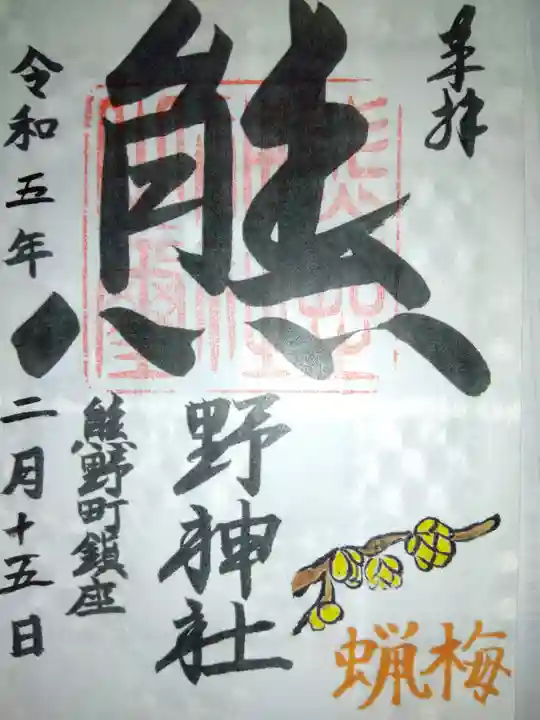 奉拝
熊野神社
熊野町鎮座
令和五年二月十五日
蝋梅